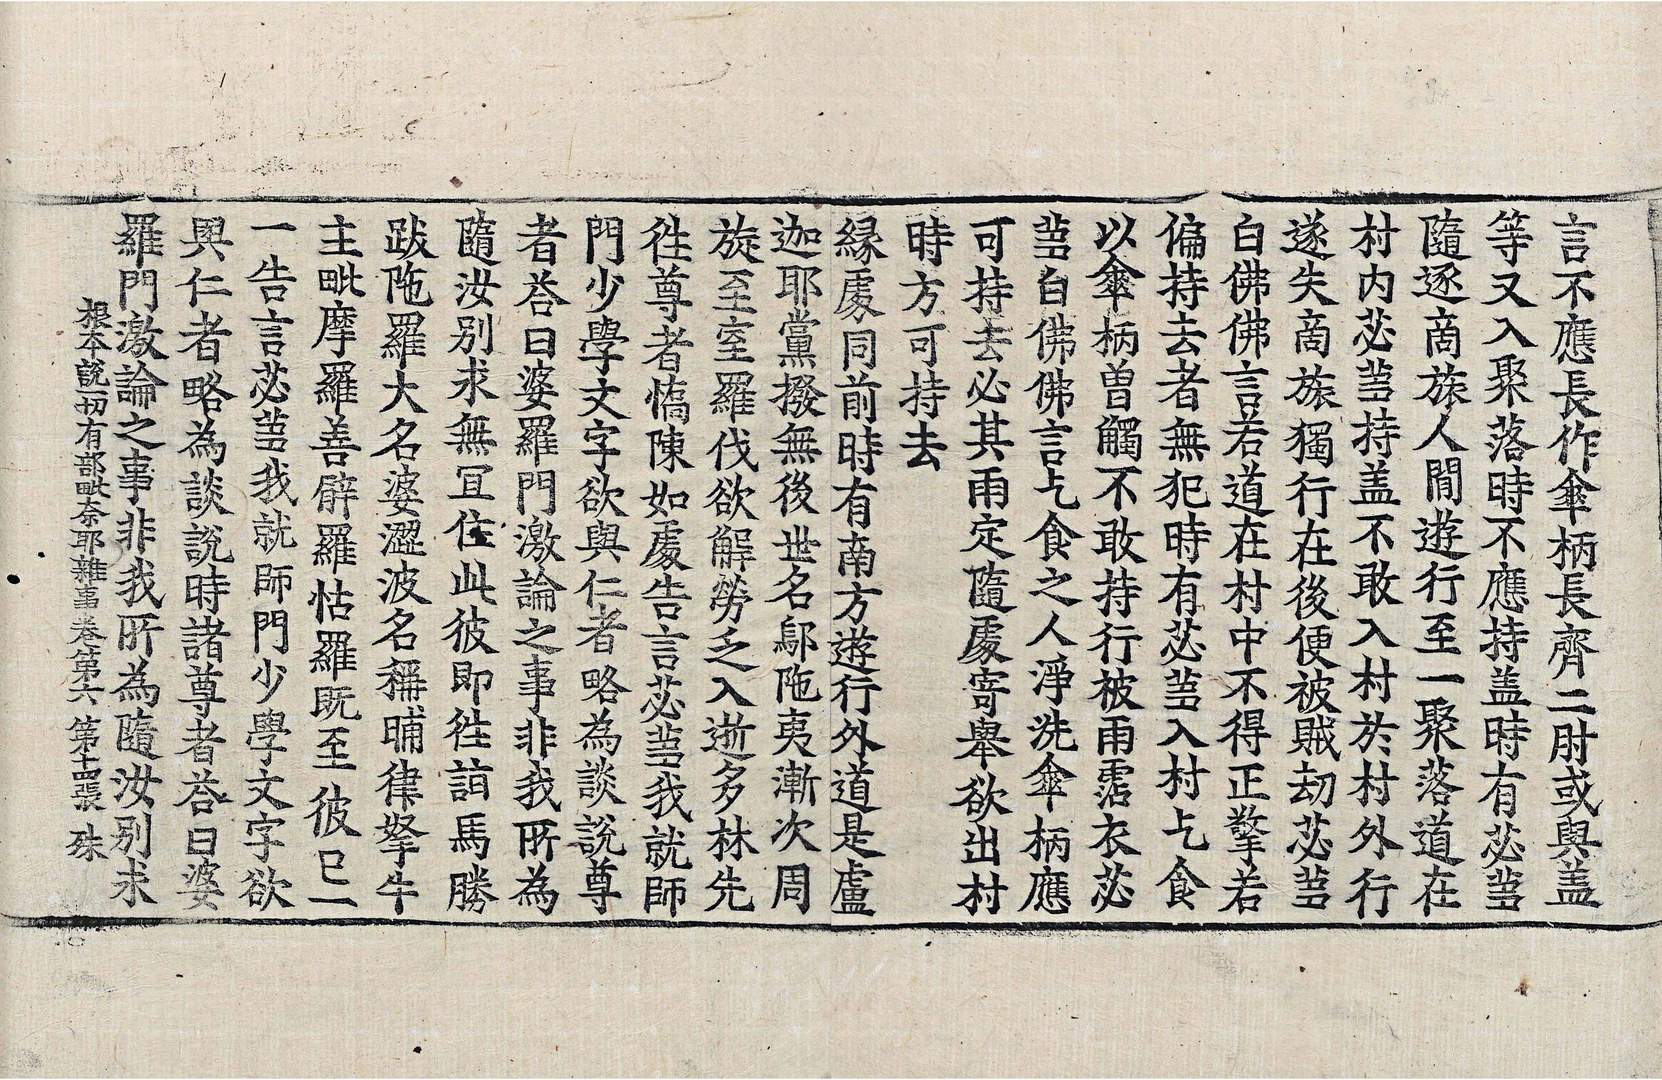 言不應長作傘柄長齊二肘或與盖
等又入聚落時不應持盖時有苾蒭
隨逐商旅人間遊行至一聚落道在
村内苾蒭持盖不敢入村於村外行
遂失商旅獨行在後便被賊劫苾蒭
白佛佛言若道在村中不得正擎若
偏持去者無犯時有苾蒭入村乞食
以傘柄曽觸不敢持行被雨霑衣苾
蒭白佛佛言乞食之人淨洗傘柄應
可持去必其雨定隨處寄舉欲出村
時方可持去
縁處同前時有南方遊行外道是盧
迦耶黨撥無後世名鄔陁夷漸次周
旋至室羅伐欲解勞乏入逝多林先
徃尊者憍陳如處告言苾蒭我就師
門少學文字欲與仁者略為談說尊
者荅曰婆羅門激論之事非我所為
隨汝別求無冝住此彼即徃詣馬勝
跋陁羅大名婆澀波名稱晡律拏牛
主毗摩羅善臂羅怙羅既至彼已一
一告言苾蒭我就師門少學文字欲
與仁者略為談說時諸尊者荅曰婆
羅門激論之事非我所為隨汝別求
根本說一切有部毗奈耶雜事卷第六 第十四張 殊